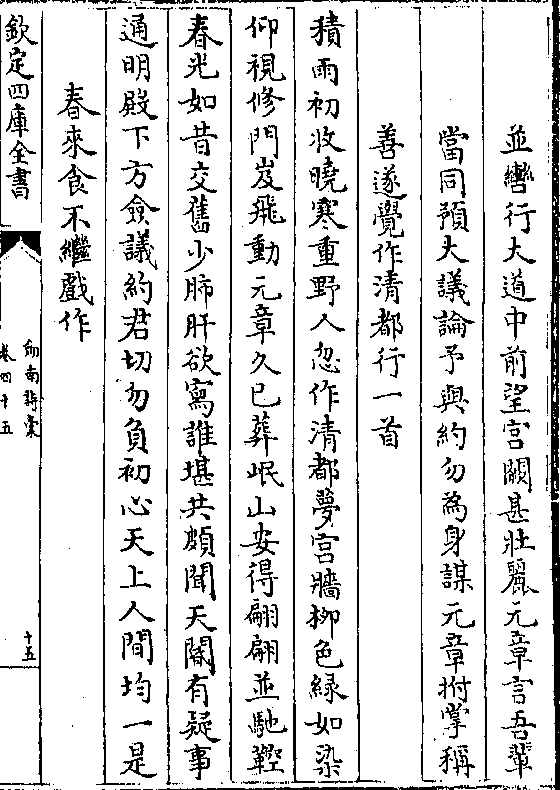 並轡行大道中前望宮闕甚壯麗元章言吾輩
當同預大議論予與約勿為身謀元章拊掌稱
善遂覺作清都行一首
積雨初收曉寒重野人忽作清都夢宮牆栁色緑如染
仰視修門岌飛動元章久已葬岷山安得翩翩並馳鞚
春光如昔交舊少肺肝欲寫誰堪共頗聞天闕有疑事
通明殿下方僉議約君切勿負初心天上人間均一是
春來食不繼戲作
欽定四庫全書
劒南詩稾
卷四十五
十五